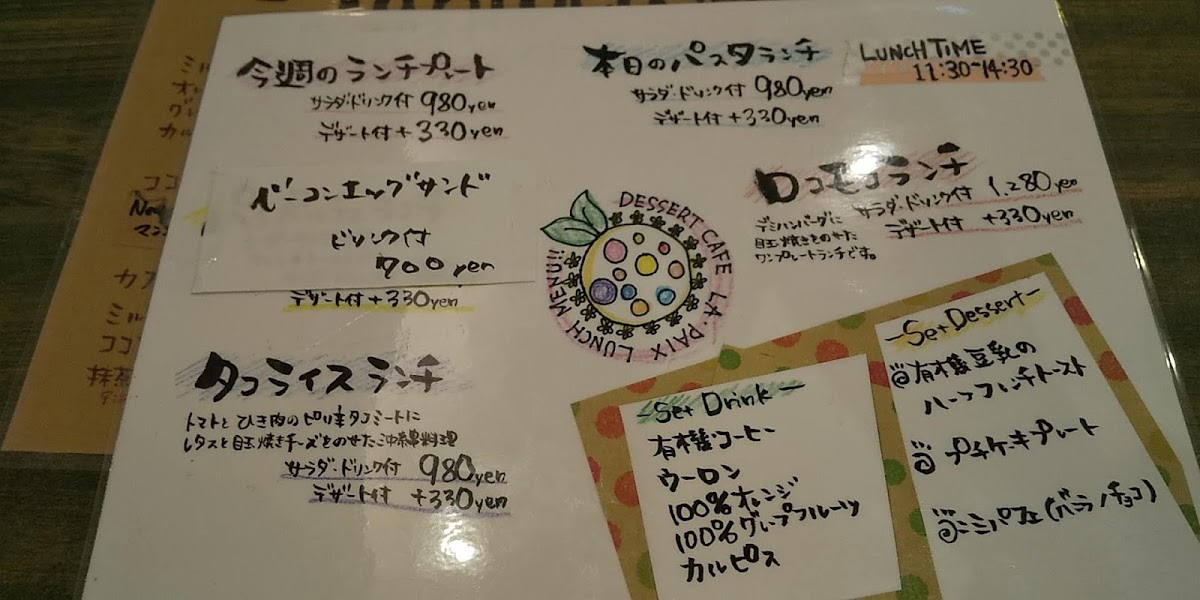 今週のランチプレート
サラダ・ドリンク付 980yen
デザート付 +330yen
本日のパスタランチ
サラダ・ドリンク付 980yen
デザート付 +330yen
LUNCH TIME
11:30~14:30
ベーコンエッグサンド
ドリンク付
700yen
デザート付 +330yen
ロコモコランチ
サラダ・ドリンク付 1,280yen
デザート付 +330yen
デミハンバーグに
目玉焼きをのせた
ワンプレートランチです。
DESSERT CAFE LA・PAIX LUNCH MENU!!
タコライスランチ
トマトとひき肉のピリ辛タコミートに
レタスと目玉焼きチーズをのせた沖縄料理
サラダ・ドリンク付 980yen
デザート付 +330yen
-Set Drink-
有機コーヒー
ウーロン
100%オレンジ
100%グレープフルーツ
カルピス
-Set Dessert-
有機豆乳の
ハーフフレンチトースト
プチケーキプレート
ミニパフェ(バニラ/チョコ)
ミル
カル
ココ
カフ
ミル
ココ
抹茶